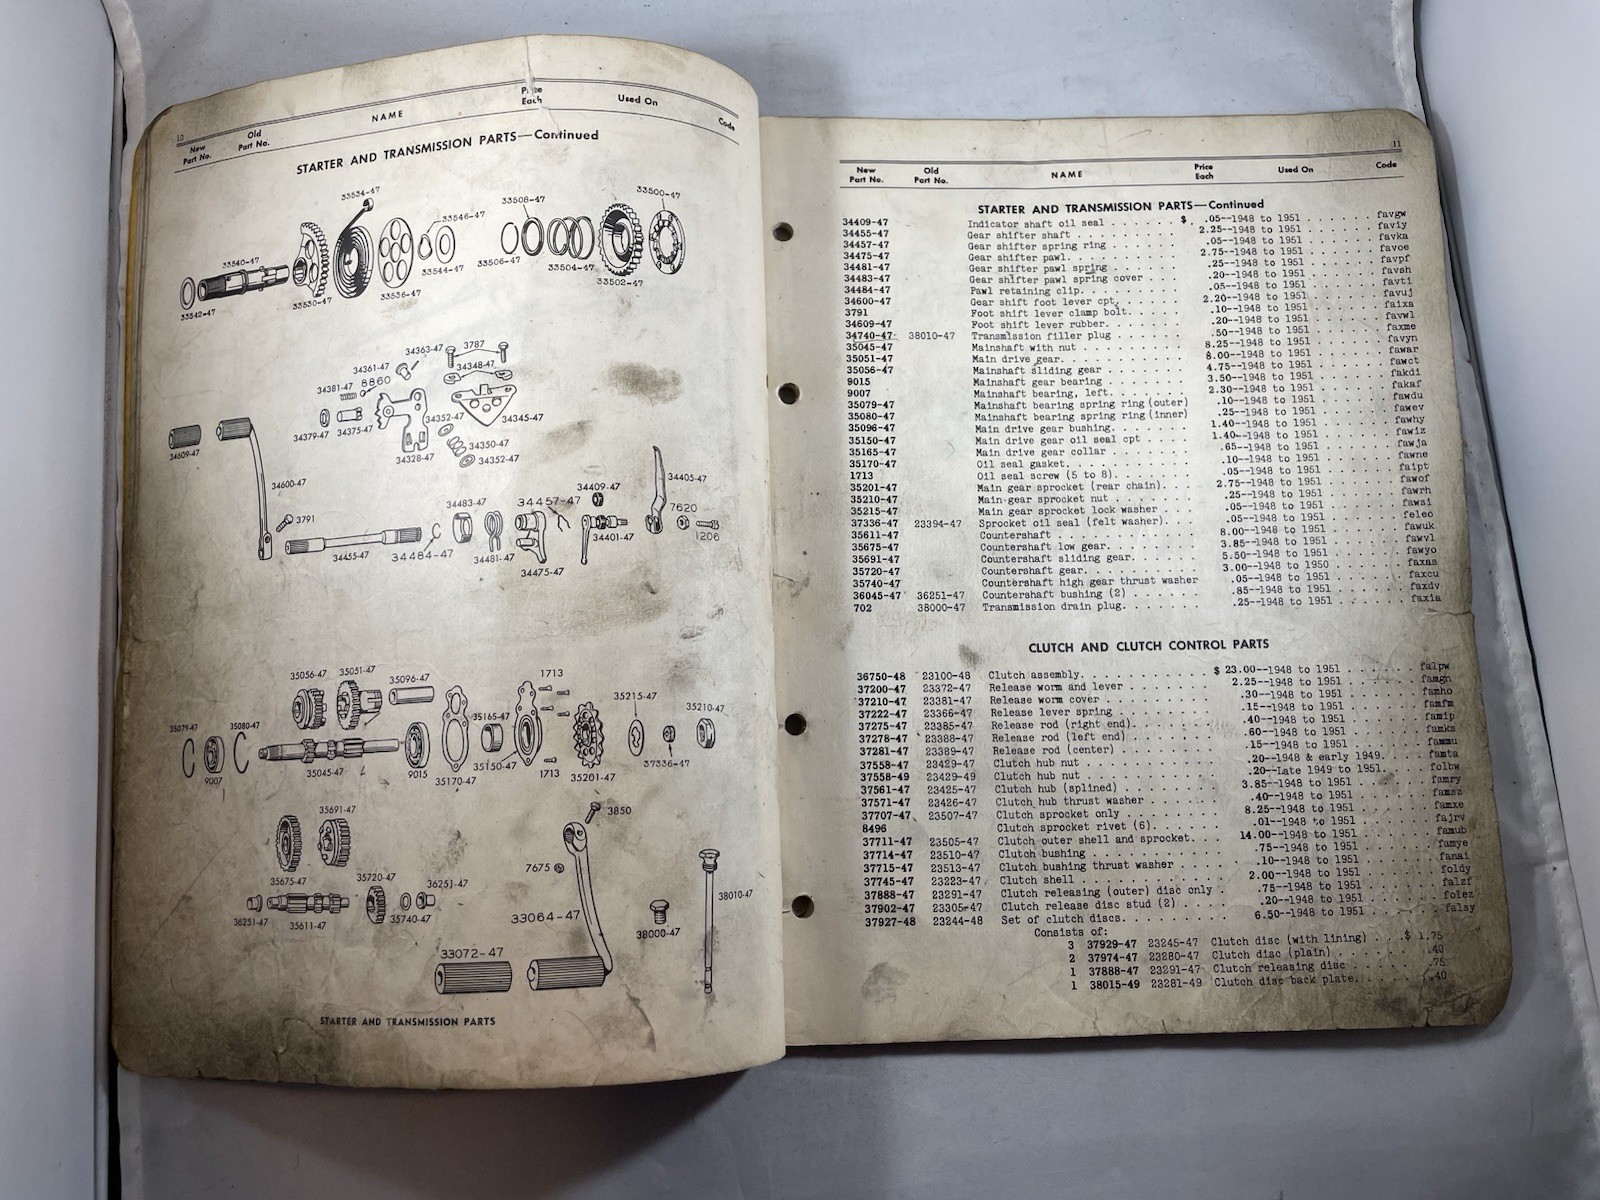 10
New Part No.
Old Part No.
NAME
Price Each
Used On
Code
STARTER AND TRANSMISSION PARTS—Continued
33534-47
33508-47
33500-47
33546-47
33540-47
33544-47
33506-47
33504-47
33502-47
33536-47
33530-47
33542-47
34363-47
3787
34361-47
34348-47
34381-47
8860
34379-47
34375-47
34352-47
34345-47
34350-47
34328-47
34352-47
34609-47
34600-47
34405-47
34409-47
34483-47
34457-47
7620
3791
34401-47
1206
34455-47
34484-47
34481-47
34475-47
35056-47
35051-47
35096-47
1713
35215-47
35210-47
35079-47
35080-47
35165-47
9007
35045-47
9015
35170-47
35150-47
1713
35201-47
37336-47
35691-47
3850
35675-47
35720-47
36251-47
7675
38010-47
36251-47
35611-47
35740-47
33064-47
38000-47
33072-47
STARTER AND TRANSMISSION PARTS
11
New Part No.
Old Part No.
NAME
Price Each
Used On
Code
STARTER AND TRANSMISSION PARTS—Continued
34409-47 Indicator shaft oil seal . . . . . $ .05--1948 to 1951 . . . . . . . favgw
34455-47 Gear shifter shaft . . . . . 2.25--1948 to 1951 . . . . . . . faviy
34457-47 Gear shifter spring ring . . . . . .05--1948 to 1951 . . . . . . . favka
34475-47 Gear shifter pawl. . . . . 2.75--1948 to 1951 . . . . . . . favoe
34481-47 Gear shifter pawl spring . . . . . .25--1948 to 1951 . . . . . . . favpf
34483-47 Gear shifter pawl spring cover . . . . . .20--1948 to 1951 . . . . . . . favsh
34484-47 Pawl retaining clip. . . . . .05--1948 to 1951 . . . . . . . favti
34600-47 Gear shift foot lever cpt. . . . . 2.20--1948 to 1951 . . . . . . . favuj
3791 Foot shift lever clamp bolt. . . . . .10--1948 to 1951 . . . . . . . faixa
34609-47 Foot shift lever rubber. . . . . .20--1948 to 1951 . . . . . . . favwl
34740-47 38010-47 Transmission filler plug . . . . . .50--1948 to 1951 . . . . . . . faxme
35045-47 Mainshaft with nut . . . . . 8.25--1948 to 1951 . . . . . . . favyn
35051-47 Main drive gear. . . . . 8.00--1948 to 1951 . . . . . . . fawar
35056-47 Mainshaft sliding gear . . . . . 4.75--1948 to 1951 . . . . . . . fawct
9015 Mainshaft gear bearing . . . . . 3.50--1948 to 1951 . . . . . . . fakdi
9007 Mainshaft bearing, left. . . . . 2.30--1948 to 1951 . . . . . . . fakaf
35079-47 Mainshaft bearing spring ring (outer) .10--1948 to 1951 . . . . . . . fawdu
35080-47 Mainshaft bearing spring ring (inner) .25--1948 to 1951 . . . . . . . fawev
35096-47 Main drive gear bushing. . . . . 1.40--1948 to 1951 . . . . . . . fawhy
35150-47 Main drive gear oil seal cpt . . . . . 1.40--1948 to 1951 . . . . . . . fawiz
35165-47 Main drive gear collar . . . . . .65--1948 to 1951 . . . . . . . fawja
35170-47 Oil seal gasket. . . . . .10--1948 to 1951 . . . . . . . fawne
1713 Oil seal screw (5 to 8). . . . . .05--1948 to 1951 . . . . . . . faipt
35201-47 Main gear sprocket (rear chain). . . . 2.75--1948 to 1951 . . . . . . . fawof
35210-47 Main gear sprocket nut . . . . . .25--1948 to 1951 . . . . . . . fawrh
35215-47 Main gear sprocket lock washer . . . . .05--1948 to 1951 . . . . . . . fawsi
37336-47 23394-47 Sprocket oil seal (felt washer). . . . .05--1948 to 1951 . . . . . . . feleo
35611-47 Countershaft . . . . . 8.00--1948 to 1951 . . . . . . . fawuk
35675-47 Countershaft low gear. . . . . 3.85--1948 to 1951 . . . . . . . fawvl
35691-47 Countershaft sliding gear. . . . . 5.50--1948 to 1951 . . . . . . . fawyo
35720-47 Countershaft gear. . . . . 3.00--1948 to 1950 . . . . . . . faxas
35740-47 Countershaft high gear thrust washer .05--1948 to 1951 . . . . . . . faxcu
36045-47 36251-47 Countershaft bushing (2) . . . . . .85--1948 to 1951 . . . . . . . faxdv
702 38000-47 Transmission drain plug. . . . . .25--1948 to 1951 . . . . . . . faxia
CLUTCH AND CLUTCH CONTROL PARTS
36750-48 23100-48 Clutch assembly. . . . . $ 23.00--1948 to 1951 . . . . . . . falpw
37200-47 23372-47 Release worm and lever . . . . . 2.25--1948 to 1951 . . . . . . . famgn
37210-47 23381-47 Release worm cover . . . . . .30--1948 to 1951 . . . . . . . famho
37222-47 23366-47 Release lever spring . . . . . .15--1948 to 1951 . . . . . . . famfm
37275-47 23385-47 Release rod (right end). . . . . .40--1948 to 1951 . . . . . . . famip
37278-47 23388-47 Release rod (left end) . . . . . .60--1948 to 1951 . . . . . . . famks
37281-47 23389-47 Release rod (center) . . . . . .15--1948 to 1951 . . . . . . . fammu
37558-47 23429-47 Clutch hub nut . . . . . .20--1948 & early 1949. . . . . famta
37558-49 23429-49 Clutch hub nut . . . . . .20--late 1949 to 1951. . . . . folbw
37561-47 23425-47 Clutch hub (splined) . . . . . 3.85--1948 to 1951 . . . . . . . famry
37571-47 23426-47 Clutch hub thrust washer . . . . . .40--1948 to 1951 . . . . . . . famsz
37707-47 23507-47 Clutch sprocket only . . . . . 8.25--1948 to 1951 . . . . . . . famxe
8496 Clutch sprocket rivet (6). . . . . .01--1948 to 1951 . . . . . . . fajrv
37711-47 23505-47 Clutch outer shell and sprocket. . . . 14.00--1948 to 1951 . . . . . . . famub
37714-47 23510-47 Clutch bushing . . . . . .75--1948 to 1951 . . . . . . . famye
37715-47 23513-47 Clutch bushing thrust washer . . . . . .10--1948 to 1951 . . . . . . . fanai
37745-47 23223-47 Clutch shell . . . . . 2.00--1948 to 1951 . . . . . . . foldy
37888-47 23291-47 Clutch releasing (outer) disc only . .75--1948 to 1951 . . . . . . . falzf
37902-47 23305-47 Clutch release disc stud (2) . . . . . .20--1948 to 1951 . . . . . . . folez
37927-48 23244-48 Set of clutch discs. . . . . 6.50--1948 to 1951 . . . . . . . falsy
Consists of:
3 37929-47 23245-47 Clutch disc (with lining) . . .$ 1.75
2 37974-47 23280-47 Clutch disc (plain) . . . . . .40
1 37888-47 23291-47 Clutch releasing disc . . . . . .75
1 38015-49 23281-49 Clutch disc back plate. . . . . .40